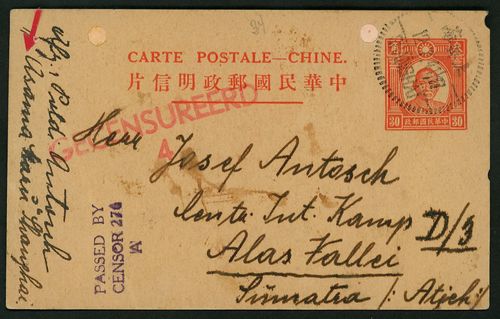 34
CARTE POSTALE—CHINE.
片信明政郵國民華中
30 政郵國民華中 30
GECENSUREERD
4
Herr Josef Antosch
Centr. Int. Kamp D/3
Alas Vallei
Sumatra /: Atjeh :/
PASSED BY
CENSOR 276
'A'
Antosch
Shanghai